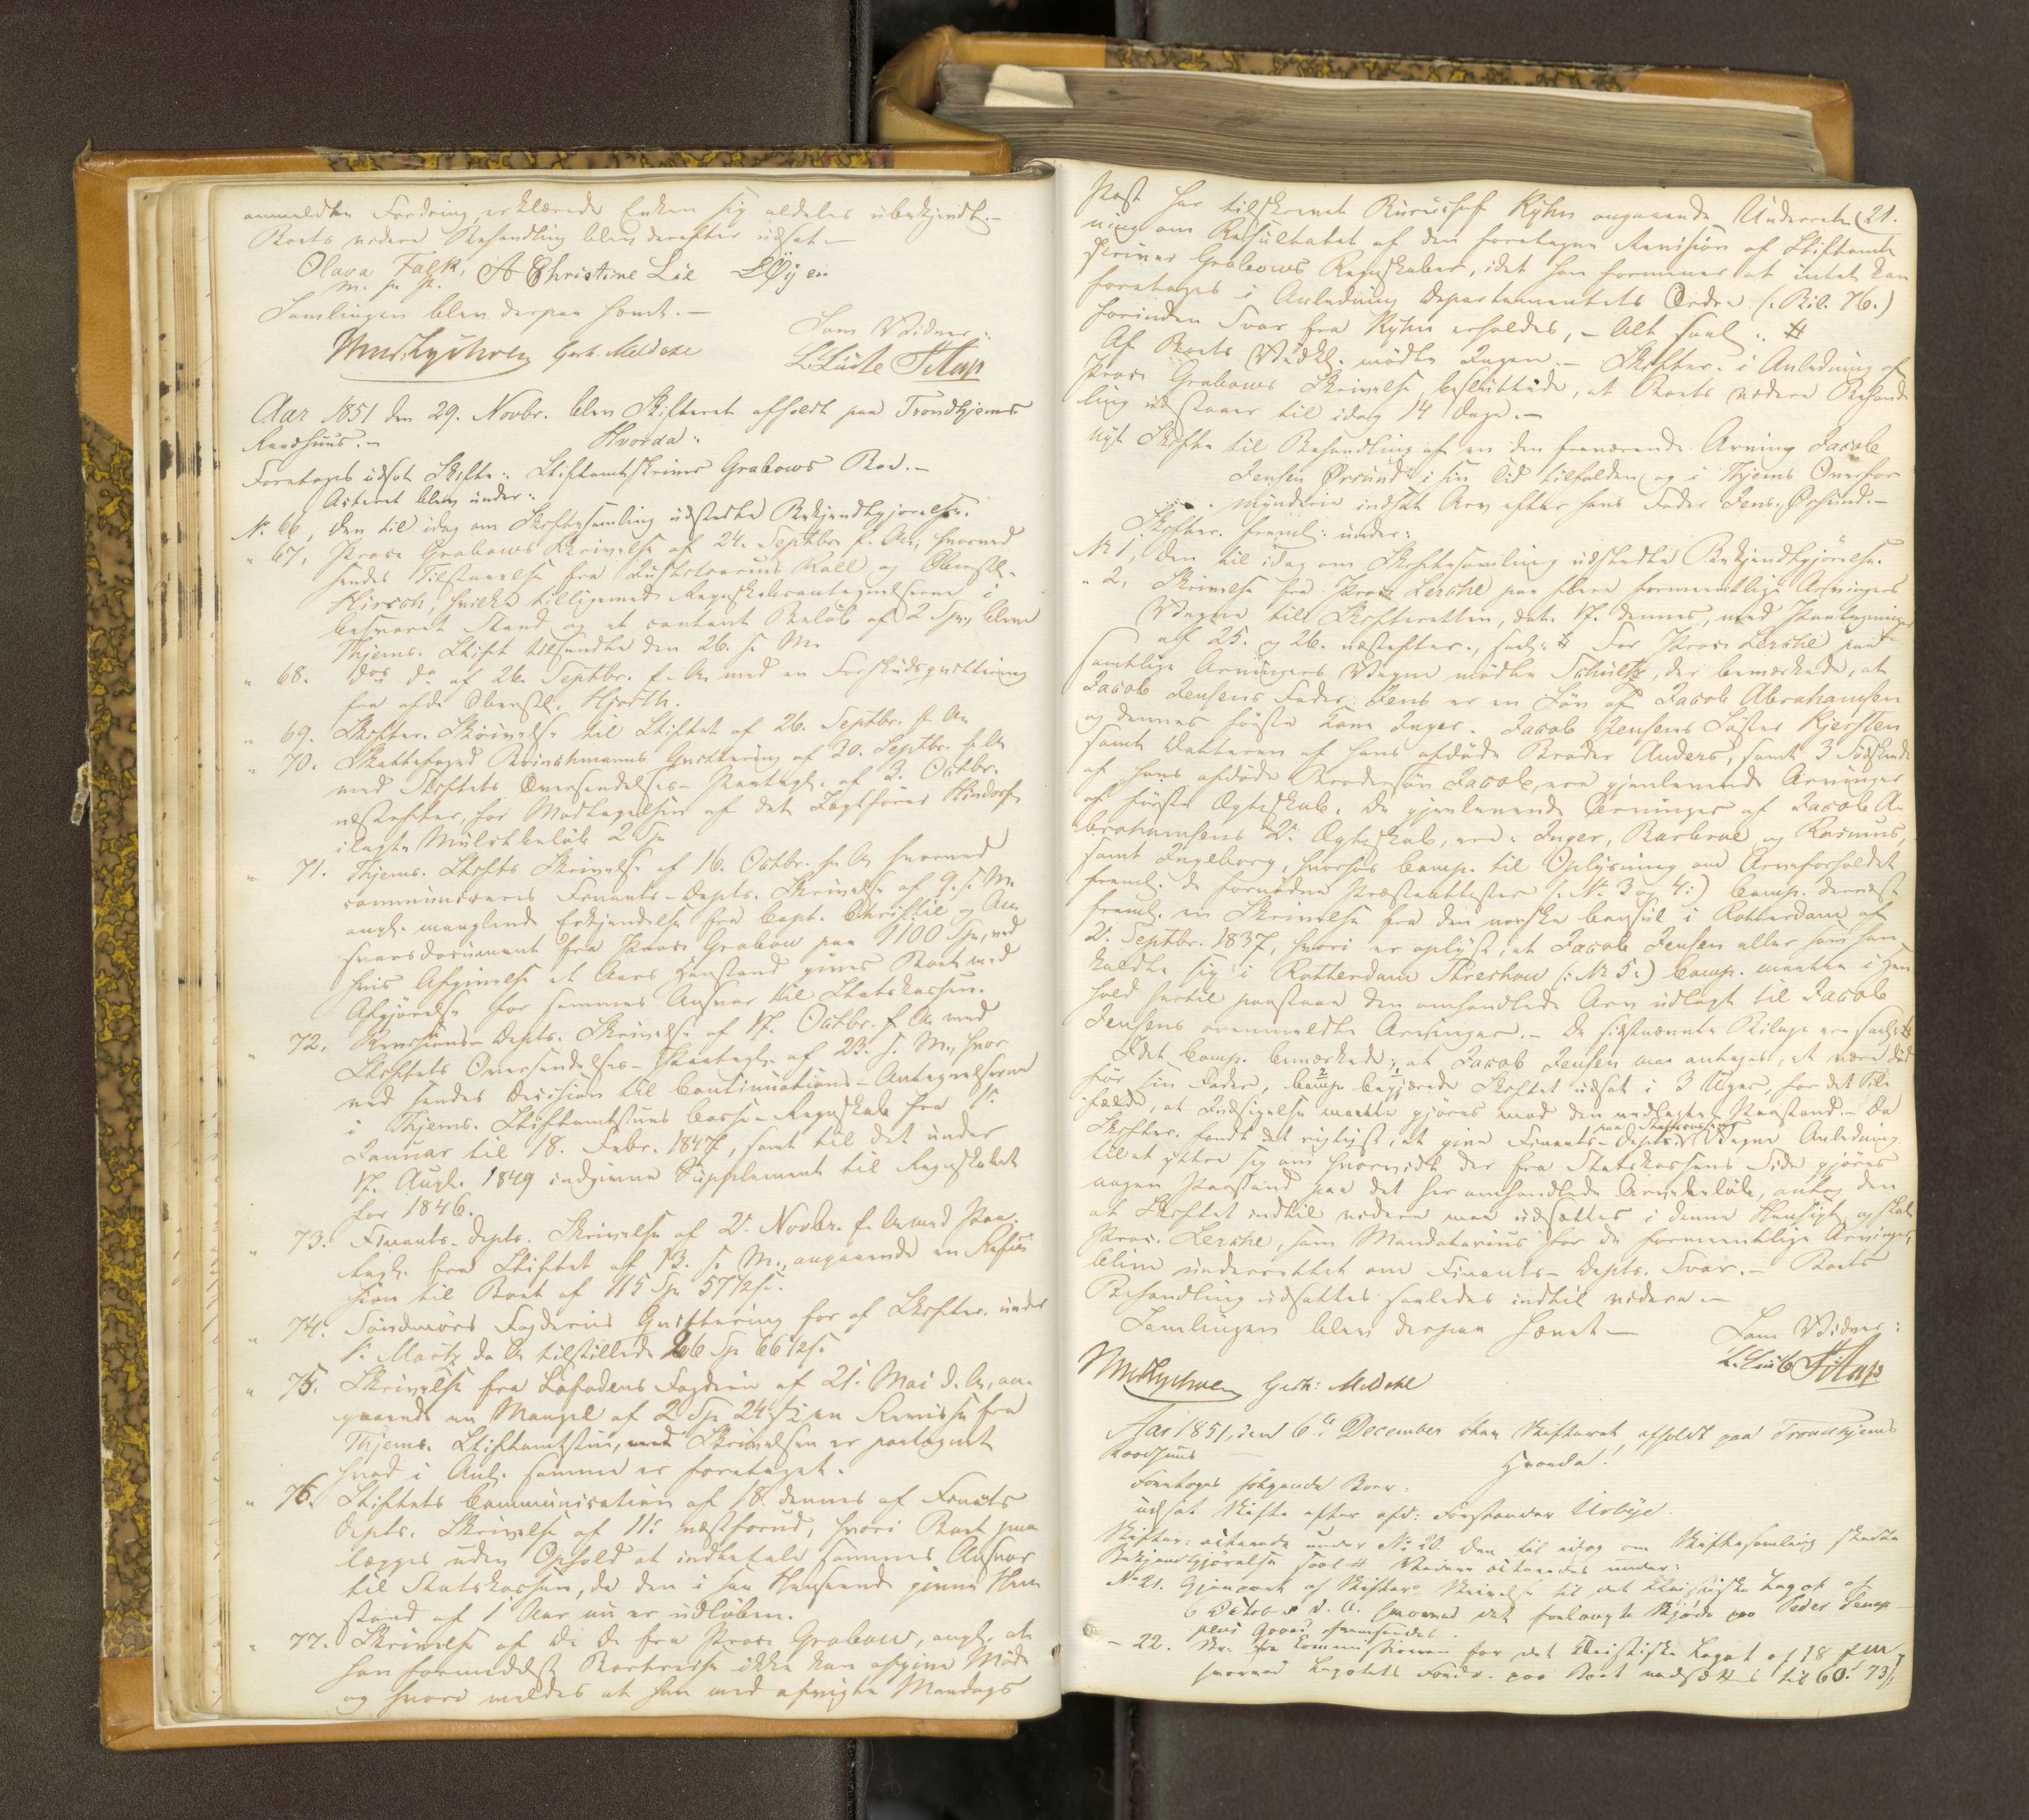 anmeldten Fordring, erklærede Enken sig aldeles ubekjendt.-
Boets videre Behandling blev derefter udsat.-
Olava Falk, A Christine Lie LØyen
m. p. P.
Samlingen blev derpaa hævet.-
Som Vidner:
Gerh. Meldahl
Aar 1851 den 29. Novbr. blev Skifteret afholdt paa Trondhjems
Raadhuus.- Hvorda:
Foretoges udsat Skifte: Stiftamtskriver Grabows Bod.-
Acteret blev under:
No 66, den til idag om Skiftesamling udstedte Bekjendtgjørelse.
" 67, Proc. Grabows Skrivelse af 24. Septbr. f. A., hvorved
sendes Tilstaaelse fra Justitsraad Roll og Oberstl.
Hirsch, hvilke tilligemed Regnskabsantegnelserne i
besvaret Stand og et contant Beløb af 2 Spd, blev
Thjems. Stift tilsendte den 26. s. M.
" 68. Do do af 26. Septbr. f. A. med en Forskudsqvittering
fra afd. Oberstl. Hjorth.
" 69. Skifter. Skrivelse til Stiftet af 26. Septbr. f. A.
" 70. Skattefoged Brinchmanns Qvittering af 30. Septbr. f. A.
med Stiftets Oversendelses-Paategn. af 3. Octbr.
næstefter, for Modtagelsen af det
ilagte Mulctbeløb 2 Spd
" 71. Thjems. Stifts Skrivelse af 16. Octbr. f. A. hvorved
communiceres Finants-Depts. Skrivelse af 9. s. M.
angl. manglende Erkjendelse fra Capt. Christie og An-
svarsdocument fra Proc. Grabow paa 1100 Spd, ved
hvis Afgivelse et Aars Henstand gives Boet med
Afgjørelse for sammes Ansvar til Statskassen.
" 72. Revisions-Depts. Skrivelse af 17. Octbr. f. A. med
Stiftets Oversendelses-Paategn. af 23. s. M., hvor-
ved sendes Decision til Continuations-Antegnelserne
i Thjems. Stiftamtstues Casse-Regnskab fra 1.
Januar til 18. Febr. 1847, samt til det under
17. Augt. 1849 indgivne Supplement til Regnskabet
for 1846.
" 73. Finants-Depts. Skrivelse af 2. Novbr. f. A. med Paa-
tegn. fra Stiftet af 13. s. M., angaaende en Refu-
sion til Boet af 115 Spd 57½ s.
" 74. Søndmørs Fogderies Qvittering for af Skifter. under
1. Martz d. A. tilstillede 26 Spd 66½ s.
" 75. Skrivelse fra Lofodens Fogderi af 21. Mai d. A., an-
gaaende en Mangel af 2 Spd 24 s i en Remisse fra
Thjems. Stiftamtstue, med Skrivelsen er paategnet
hvad i Anl. samme er foretaget.
" 76. Stiftets Communication af 18. dennes af Finants
Depts. Skrivelse af 11. næstforud, hvori Boet paa-
lægges uden Ophold at indbetale sammes Ansvar
til Statskassen, da den i saa Henseende givne Hen-
stand af 1 Aar nu er udløben.
" 77. Skrivelse af D. D. fra Proc. Grabow, angl. at
han formedelst Bortreise ikke kan afgive Møde
og hvori meldes at han med afvigte Mandags
21.
Post har tilskrevet Bureauchef Kyhn angaaende Underret-
ning om Resultatet af den foretagne Revision af Stiftamt-
skriver Grabows Regnskaber, idet han formener at intet kan
foretages i Anledning Departementets Ordre (: Bil. 76.)
forinden Svar fra Kyhn erholdes, - Alt saal.: #
Af Boets Vedk. mødte Ingen.- Skifter. i Anledning af
Proc. Grabows Skrivelse besluttede, at Boets videre Behand-
ling udstaaer til idag 14 Dage.-
nyt Skifte til Behandling af en den fraværende Arving Jacob
Jensen Ørsund i sin Tid tilfalden og i Thjems Overfor-
mynderie indsat Arv efter hans Fader Jens Ørsund.-
Skifter. freml. under:
No 1, den til idag om Skiftesamling udstedte Bekjendtgjørelse.
" 2, Skrivelse fra Proc. Lerche paa flere formeentlige Arvingers
Vegne till Skifteretten, dat. 17. dennes, med Paategninger
af 25. og 26. næstefter., saal.: # For Proc. Lerche paa
samtlige Arvingers Vegne mødte Schultz, der bemærkede, at
Jacob Jensens Fader Jens er en Søn af Jacob Abrahamsen
og dennes første Kone Inger. Jacob Jensens Søster Kjersten
samt Datteren af hans afdøde Broder Anders, samt 3 Sødskende
af hans afdøde Brodersøn Jacob, ere gjenlevende Arvinger
af første Ægteskab. De gjenlevende Arvinger af Jacob A-
brahamsens 2. Ægteskab, ere: Inger, Barbroe og Rasmus,
samt Ingeborg, hvorhos Comp. til Oplysning om Arveforholdet
freml. de fornødne Præsteattester (: No 3 og 4:) Comp. dernæst
freml. en Skrivelse fra den norske Consul i Rotterdam af
2. Septbr. 1837, hvori er oplyst, at Jacob Jensen eller som han
kaldte sig i Rotterdam Threshow (: No 5:) Comp. maatte i Hen-
hold hertil paastaae den omhandlede Arv udlagt til Jacob
Jensens ovenmeldte Arvinger.- De sidstnævnte Bilage ere saal.: #
Idet Comp. bemærkede, at Jacob Jensen maa antages, at være død
før sin Fader, begjærede Skiftet udsat i 3 Uger, for det Til-
fælde, at Indsigelse maatte gjøres mod den nedlagte Paastand.- Da
Skifter. fandt det rigtigst, at give Finants-Depts. paa Statskassens Vegne Anledning
til at yttre sig om hvorvidt der fra Statskassens Side gjøres
nogen Paastand paa det her omhandlede Arvebeløb, antog den
at Skiftet indtil videre maa udsættes i denne Hensigt, og skal
Proc. Lerche, som Mandatarius for de formeentlige Arvinger,
blive underrettet om Finants-Depts. Svar.- Boets
Behandling udsattes saaledes indtil videre.-
Samlingen blev derpaa hævet.-
Som Vidner:
Gerh: Meldahl
Aar 1851, den 6te December blev Skifteret afholdt paa Trondhjems
Raadhuus Hvorda!
Foretoges følgende Boer.
udsat Skifte efter afd: Forstander Urbye.
Skifter: acterede under No 20. den til idag om Skiftesamling skedte
Bekjendtgjørelse saal # Videre acteredes under:
No 21. Gjenpart af Skifter. Skrivelse til det Thingiske Legat af
6 October d. A. hvorved det forlangte Skjøde paa Peder
Gaard fremsendes.
- 22. Skr. fra Commissionen for det Legat af 18
hvorved Legatets Fordr. paa Boet nedsættes til 60. 73